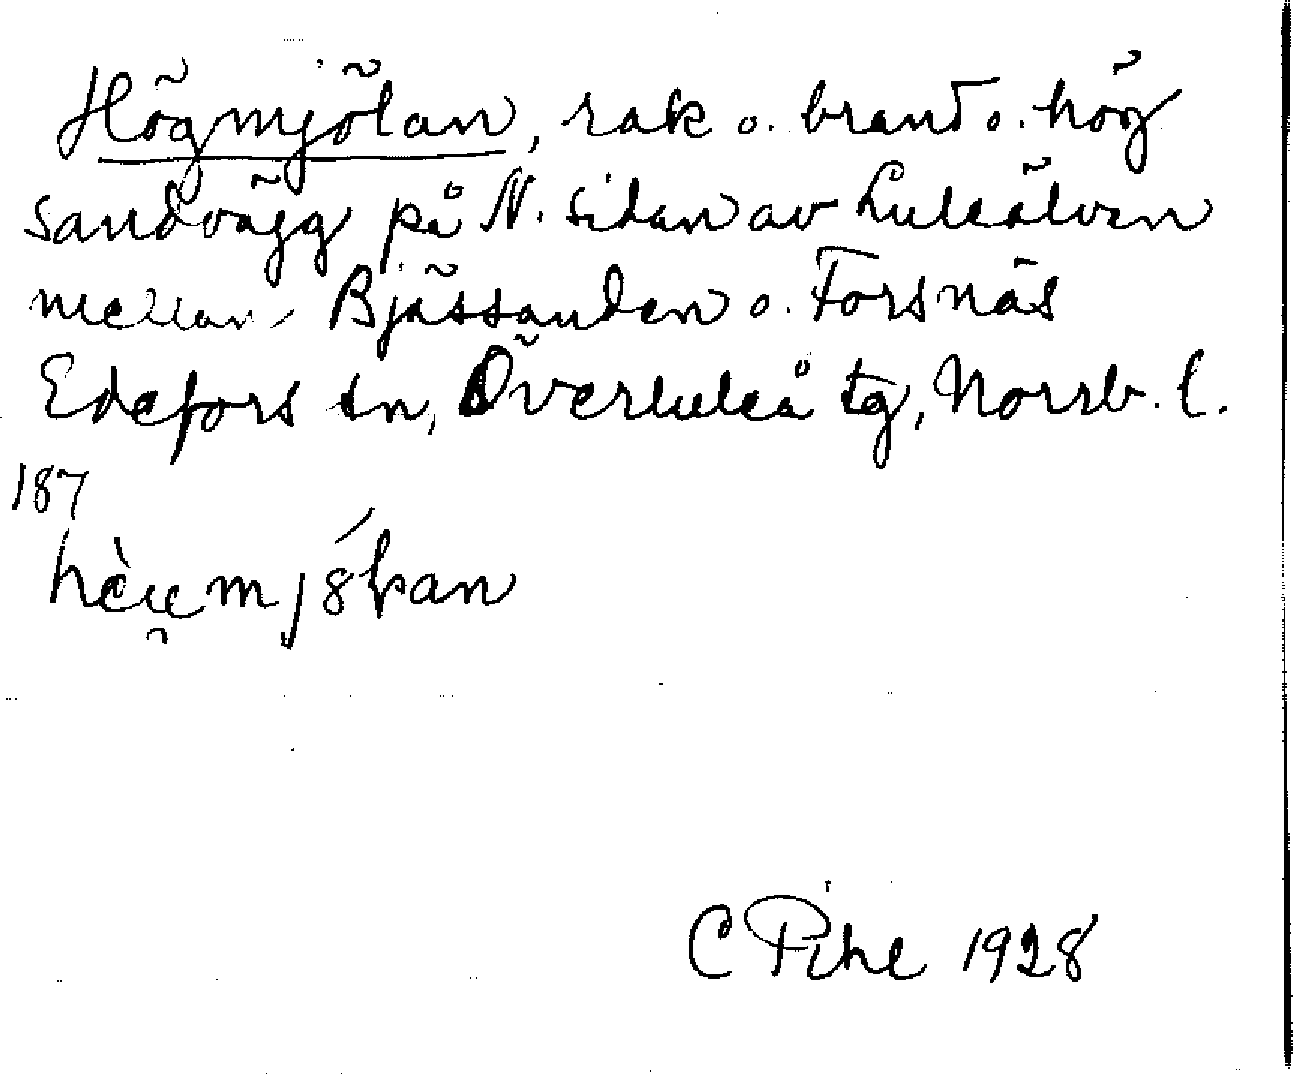 Högmjölan, rak o. brant o. hög
sandvägg på N. sidan av Luleälven
mellan Bjässanden o. Forsnäs
Edefors sn, Överluleå tg, Norrb. l.
187
C Pihl 1928